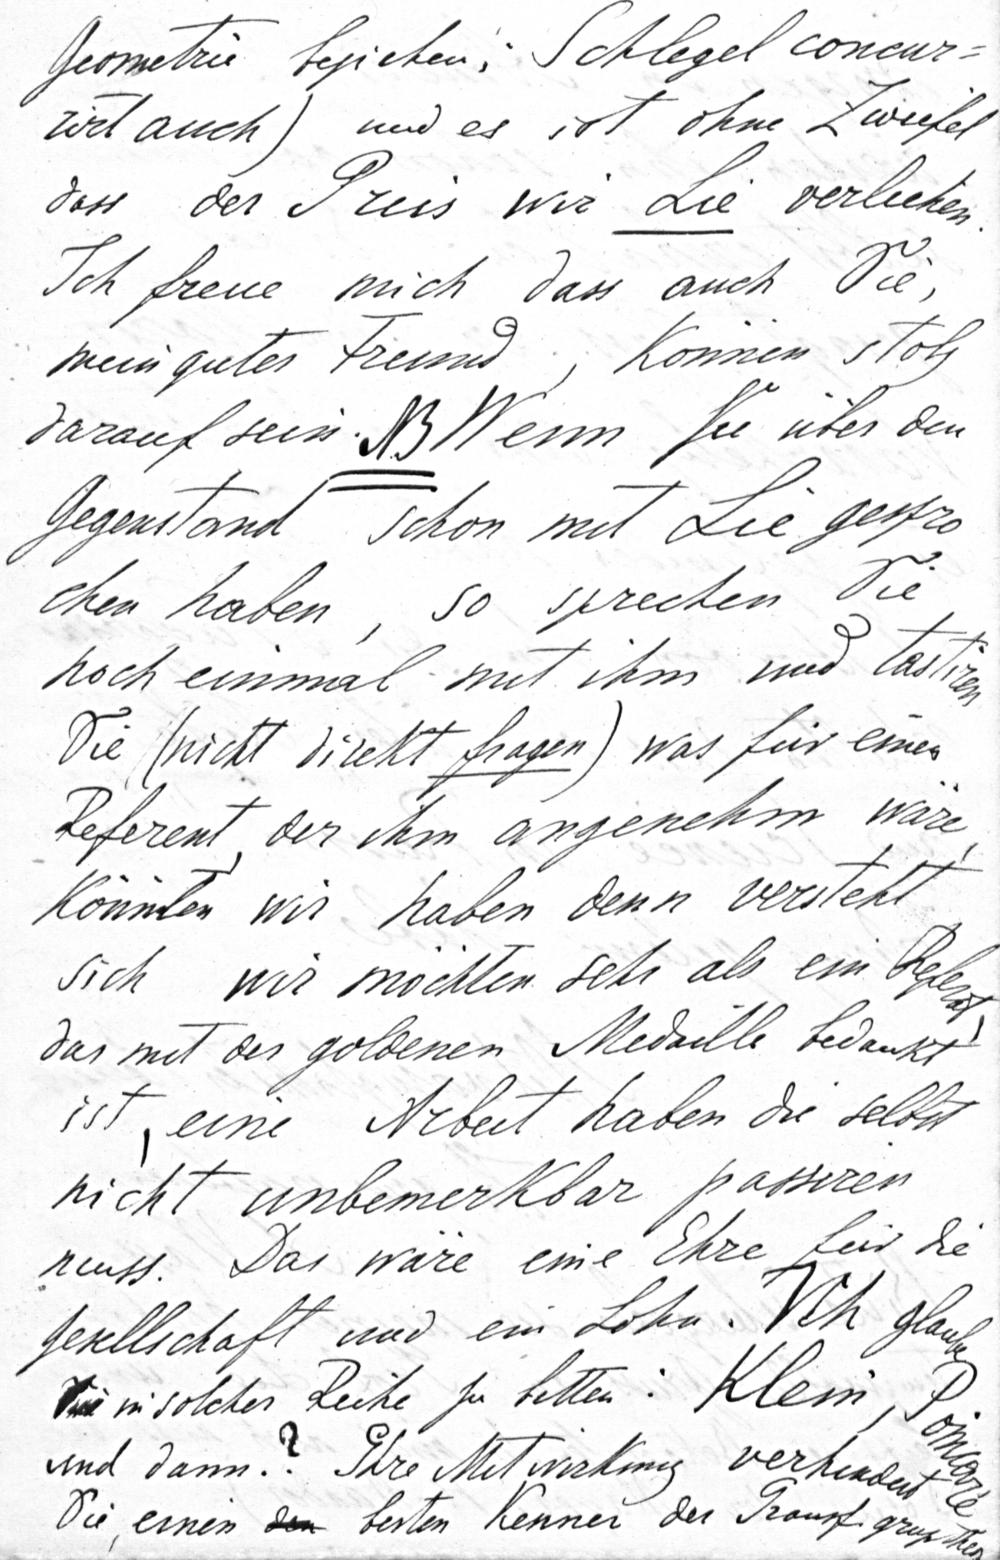 Geometrie beziehen; Schlegel concur=
rirt auch) und es ist ohne Zweifel
dass der Preis wir Lie verleihen.
Ich freue mich dass auch Sie,
mein guter Freund, können stolz
darauf sein. NB Wenn Sie über den
Gegenstand schon mit Lie gespro
chen haben, so sprechen Sie
noch einmal mit ihm und tastiren
Sie (nicht direkt fragen) was für einen
Referent, der ihm angenehm wäre,
könnten wir haben denn versteht
sich wir möchten sehr als ein Referat,
das mit der goldenen Medaille bedankt
ist, eine Arbeit haben die selbst
nicht unbemerkbar passiren
muss. Das wäre eine Ehre für die
Gesellschaft und ein Lohn. Ich glaube
in solcher Reihe zu bitten: Klein, Poincaré
und dann..? Ihre Mitwirkung verhindert
Sie, einen den besten Kenner der Transf. grup